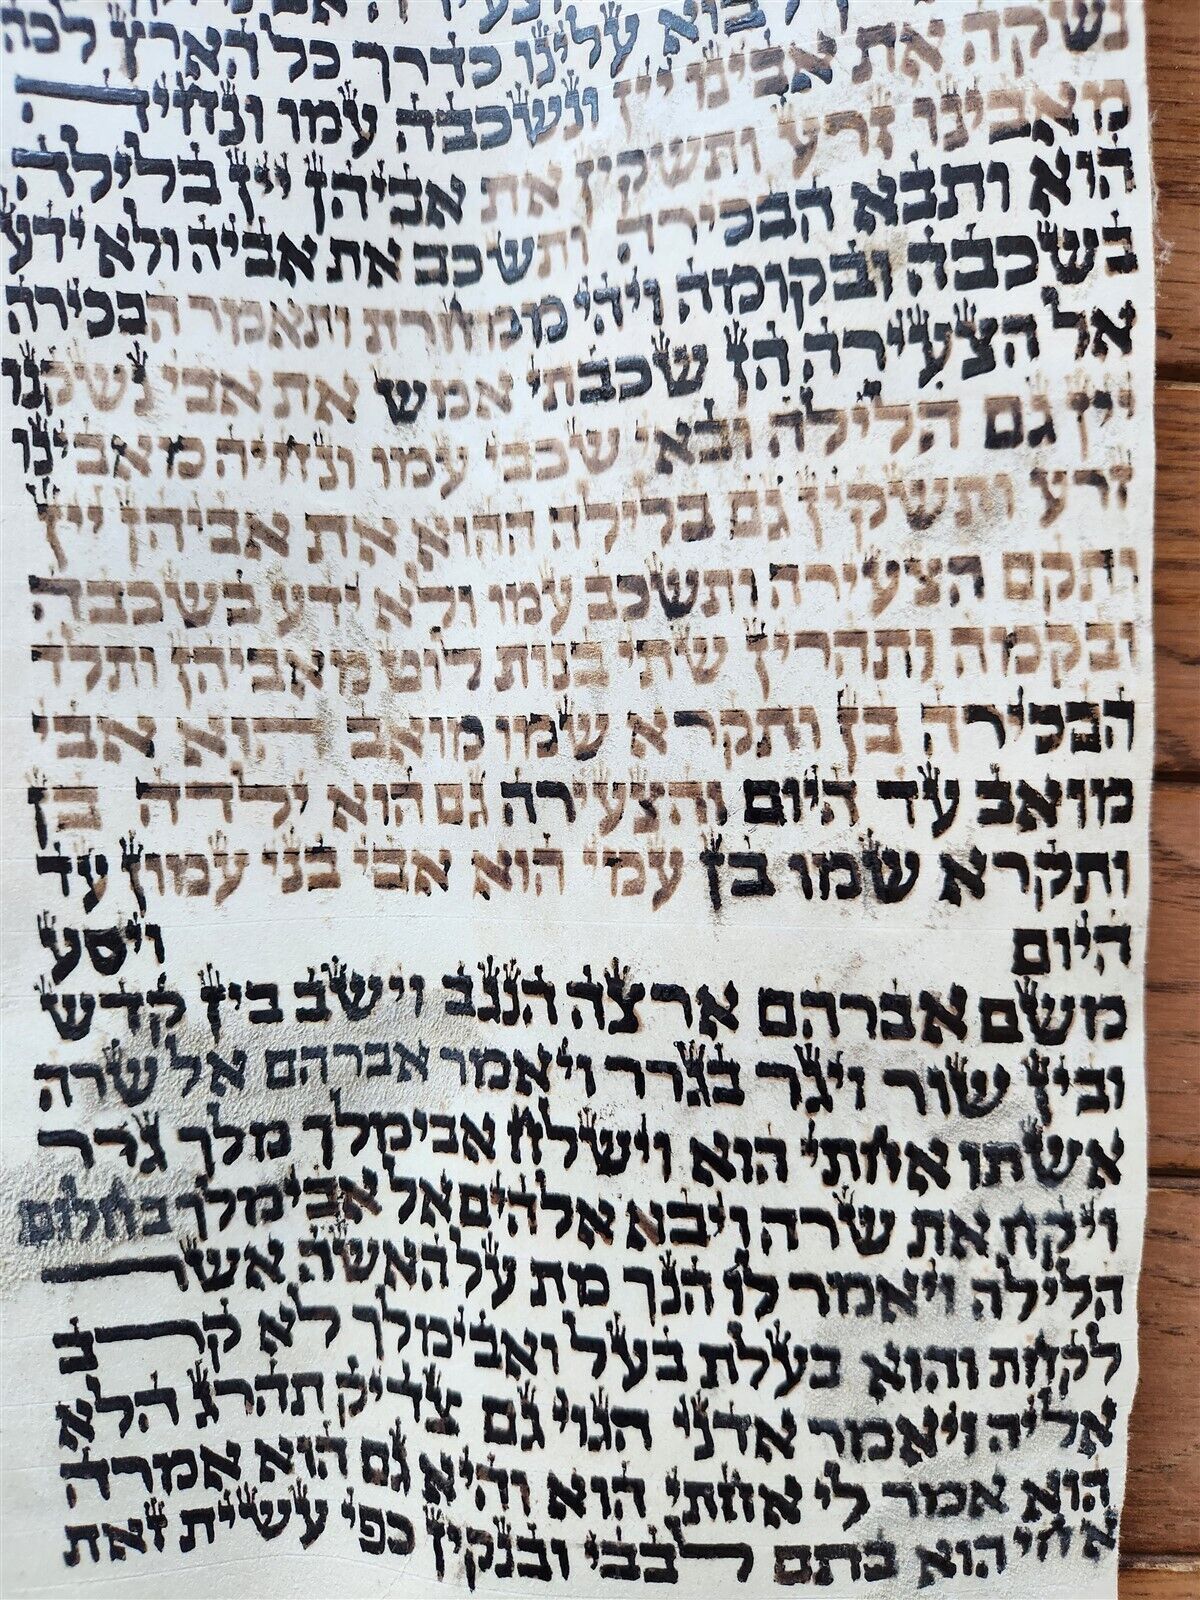 לבוא עלינו כדרך כל הארץ לכה
נשקה את אבינו יין ונשכבה עמו ונחיה
מאבינו זרע ותשקין את אביהן יין בלילה
הוא ותבא הבכירה ותשכב את אביה ולא ידע
בשכבה ובקומה ויהי ממחרת ותאמר הבכירה
אל הצעירה הן שכבתי אמש את אבי נשקנו
יין גם הלילה ובאי שכבי עמו ונחיה מאבינו
זרע ותשקין גם בלילה ההוא את אביהן יין
ותקם הצעירה ותשכב עמו ולא ידע בשכבה
ובקמה ותהרין שתי בנות לוט מאביהן ותלד
הבכירה בן ותקרא שמו מואב הוא אבי
מואב עד היום והצעירה גם הוא ילדה בן
ותקרא שמו בן עמי הוא אבי בני עמון עד
היום ויסע
משם אברהם ארצה הנגב וישב בין קדש
ובין שור ויגר בגרר ויאמר אברהם אל שרה
אשתו אחתי הוא וישלח אבימלך מלך גרר
ויקח את שרה ויבא אלהים אל אבימלך בחלום
הלילה ויאמר לו הנך מת על האשה אשר
לקחת והוא בעלת בעל ואבימלך לא קרב
אליה ויאמר אדני הגוי גם צדיק תהרג הלא
הוא אמר לי אחתי הוא והיא גם הוא אמרה
אחי הוא בתם לבבי ובנקין כפי עשיתי זאת